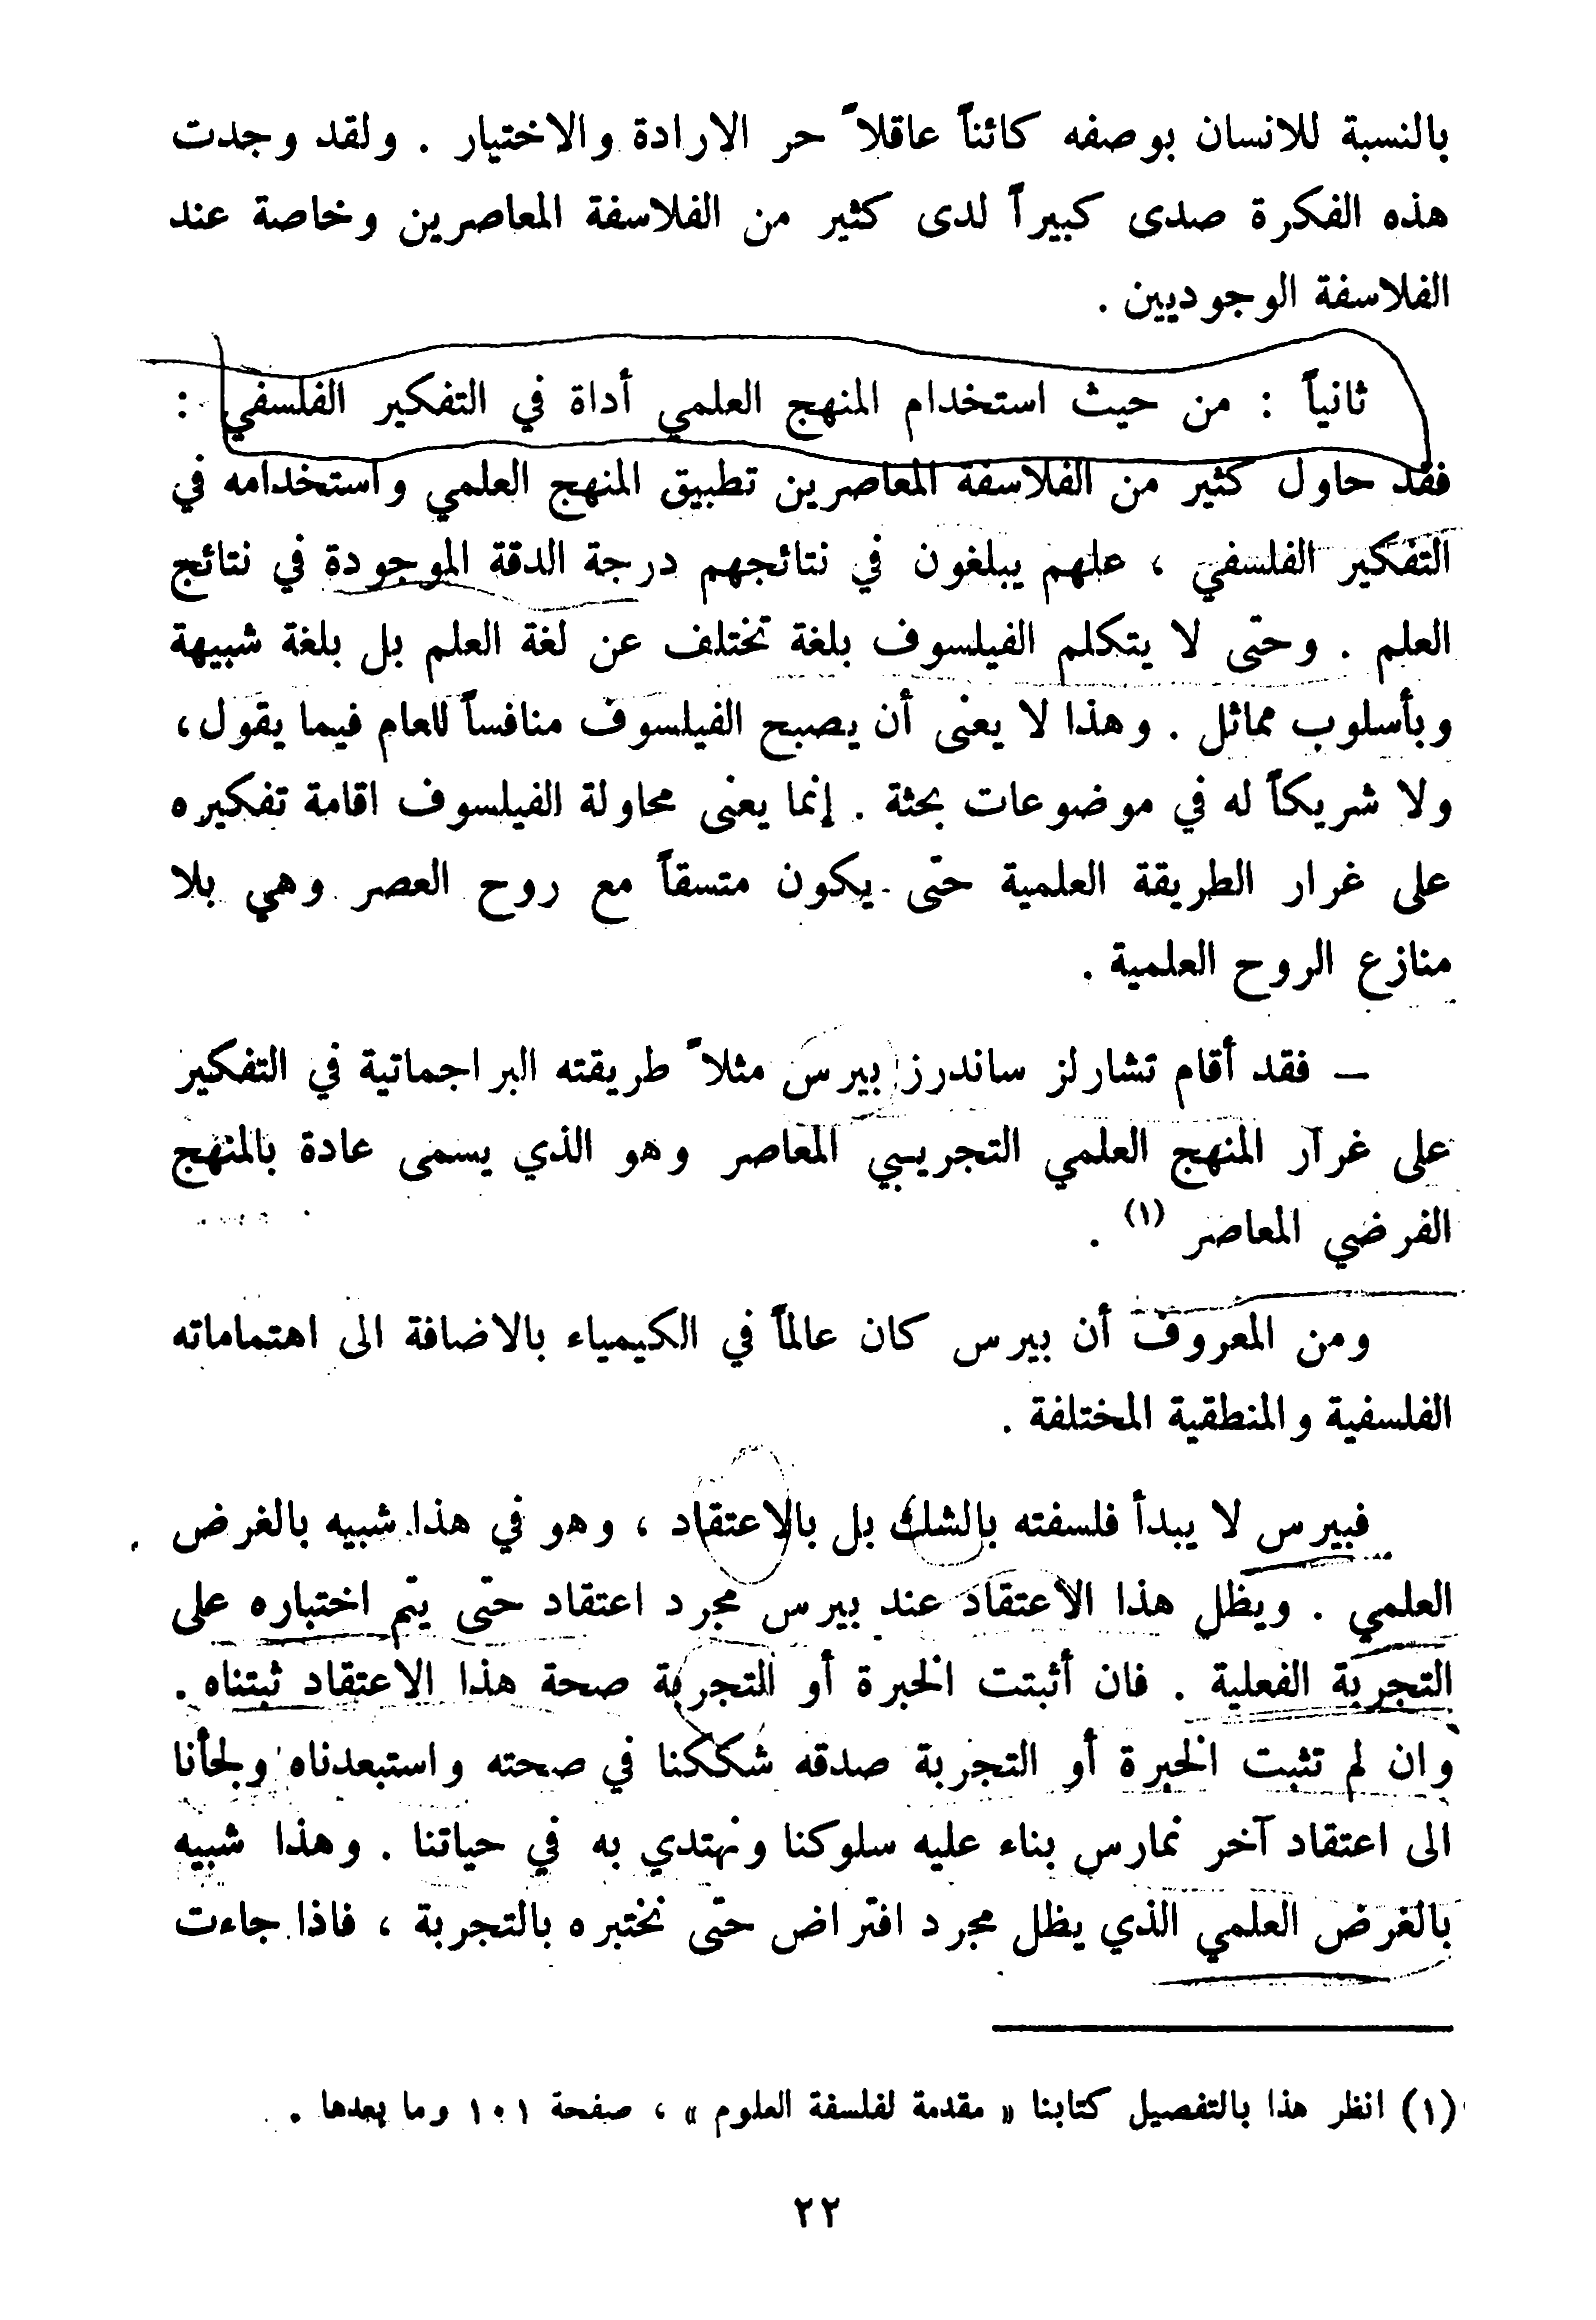 بالنسبة للانسان بوصفه كائناً عاقلاً حر الارادة والاختيار . ولقد وجدت
هذه الفكرة صدى كبيراً لدى كثير من الفلاسفة المعاصرين وخاصة عند
الفلاسفة الوجوديين .
ثانياً : من حيث استخدام المنهج العلمي أداة في التفكير الفلسفي :
فقد حاول كثير من الفلاسفة المعاصرين تطبيق المنهج العلمي واستخدامه في
التفكير الفلسفي ، علهم يبلغون في نتائجهم درجة الدقة الموجودة في نتائج
العلم . وحتى لا يتكلم الفيلسوف بلغة تختلف عن لغة العلم بل بلغة شبيهة
وبأسلوب مماثل . وهذا لا يعنى أن يصبح الفيلسوف منافساً للعام فيما يقول،
ولا شريكاً له في موضوعات بحثة . إنما يعنى محاولة الفيلسوف اقامة تفكيره
على غرار الطريقة العلمية حتى يكون متسقاً مع روح العصر وهي بلا
منازع الروح العلمية .
– فقد أقام تشارلز ساندرز بيرس مثلاً طريقته البراجماتية في التفكير
على غرار المنهج العلمي التجريبي المعاصر وهو الذي يسمى عادة بالمنهج
الفرضي المعاصر (١) .
ومن المعروف أن بيرس كان عالماً في الكيمياء بالاضافة الى اهتماماته
الفلسفية والمنطقية المختلفة .
فبيرس لا يبدأ فلسفته بالشك بل بالاعتقاد ، وهو في هذا شبيه بالغرض
العلمي . ويظل هذا الاعتقاد عند بيرس مجرد اعتقاد حتى يتم اختباره على
التجربة الفعلية . فان أثبتت الخبرة أو التجربة صحة هذا الاعتقاد ثبتناه .
وان لم تثبت الخبرة أو التجربة صدقه شككنا في صحته واستبعدناه ولجأنا
الى اعتقاد آخر نمارس بناء عليه سلوكنا ونهتدي به في حياتنا . وهذا شبيه
بالغرض العلمي الذي يظل مجرد افتراض حتى نختبره بالتجربة ، فاذا جاءت
(١) انظر هذا بالتفصيل كتابنا « مقدمة لفلسفة العلوم » ، صفحة ١٠١ وما بعدها .
٢٢